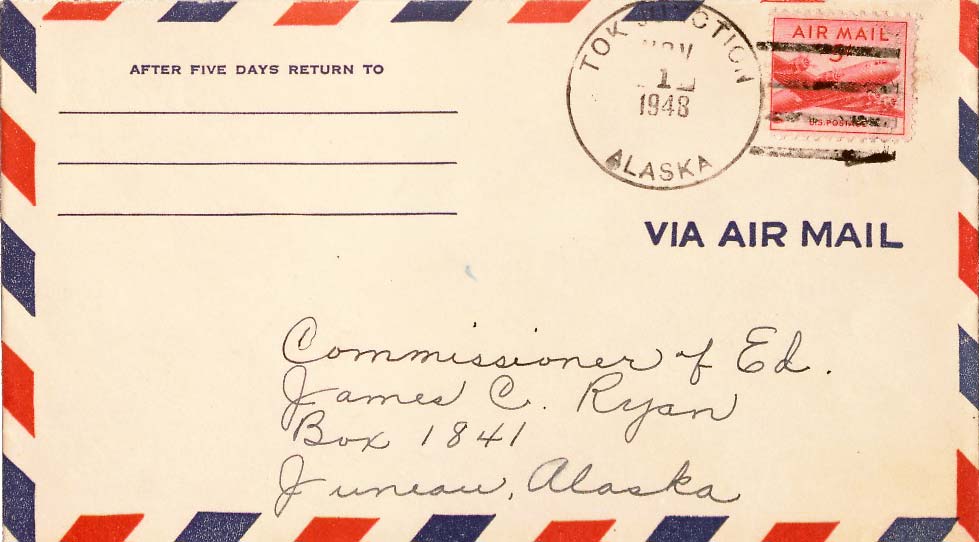 AFTER FIVE DAYS RETURN TO
TOK JUNCTION
NOV
1948
ALASKA
AIR MAIL
5¢
U.S. POSTAGE
VIA AIR MAIL
Commissioner of Ed.
James C. Ryan
Box 1841
Juneau, Alaska